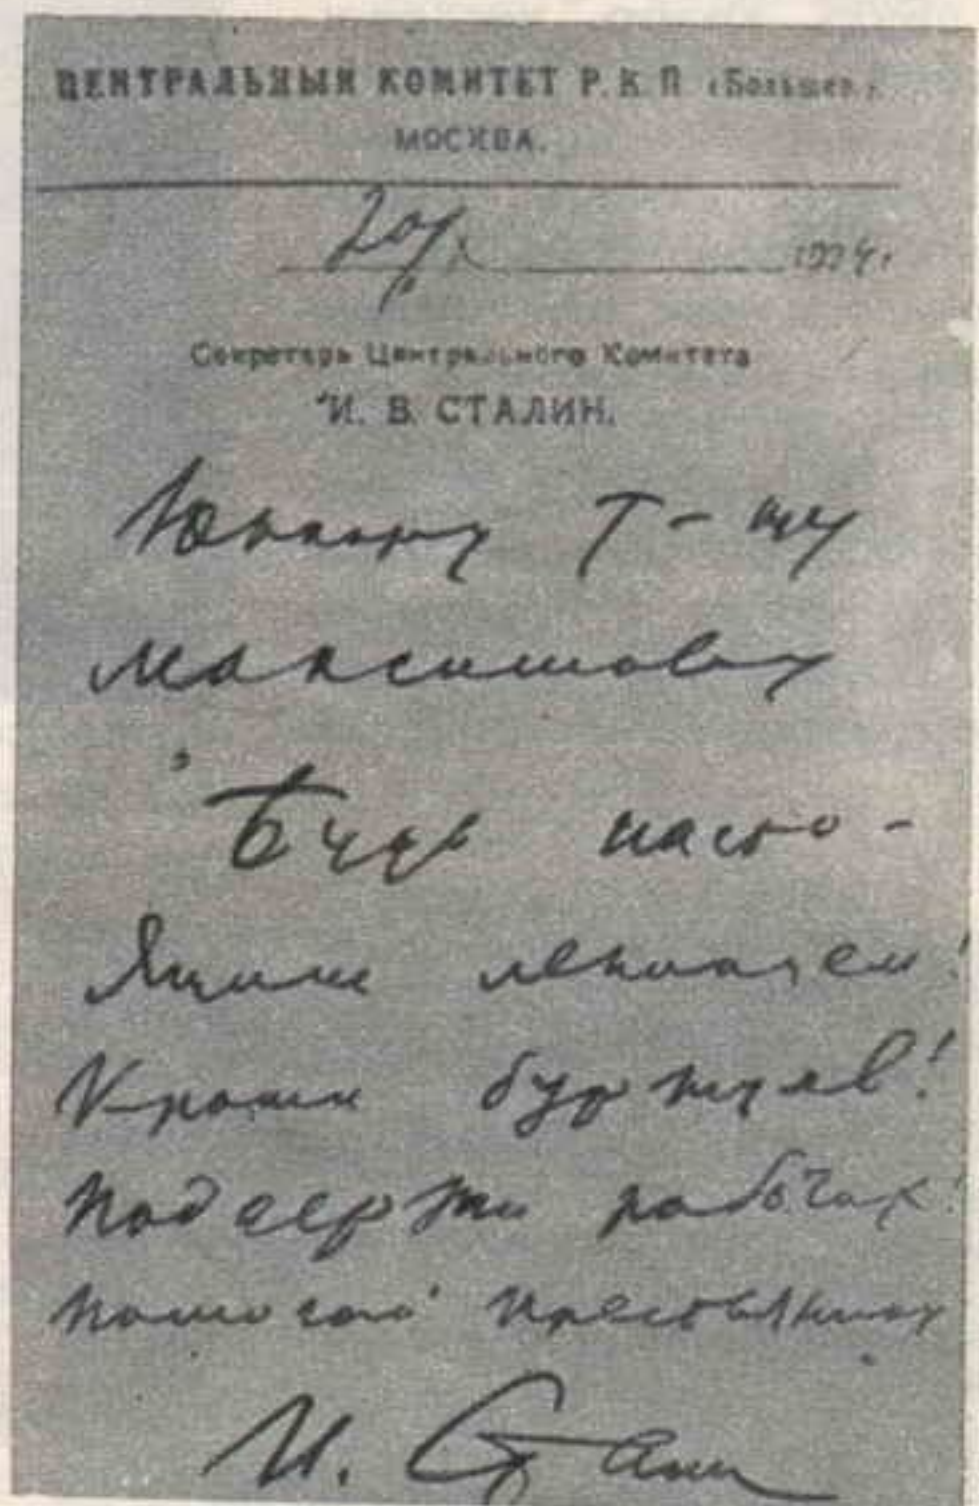 ЦЕНТРАЛЬНЫЙ КОМИТЕТ Р. К. П. (Больше.).
МОСКВА.
20/X 1924 г.
Секретарь Центрального Комитета
И. В. СТАЛИН.
Юнкору Т-щу
Максимову
Будь насто-
ящим ленинцем!
Кроши буржуев!
Поддержи рабочих!
Помогай крестьянину
И. Сталин